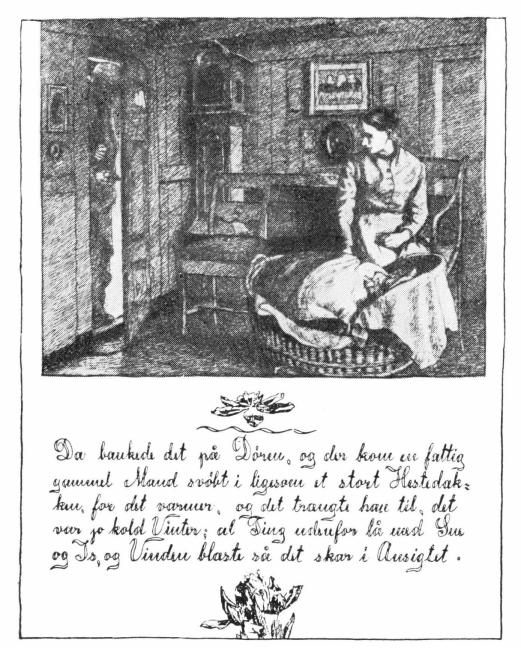 Da bankede det på Dören, og der kom en fattig
gammel Mand svöbt i ligesom et stort Hestedæk-
ken, for det varmer, og det trængte han til, det
var jo kold Vinter; al Ting udenfor lå med Sne
og Is, og Vinden blæste så det skar i Ansigtet.